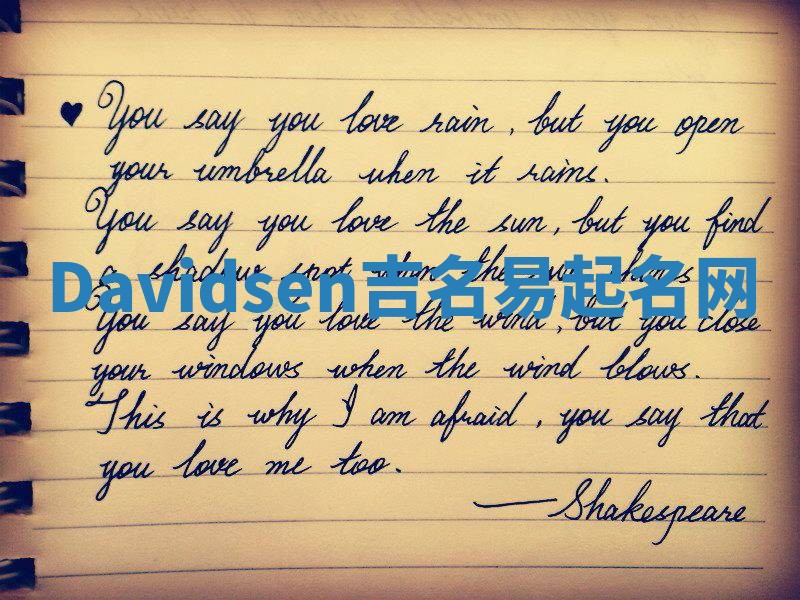 ♥ You say you love rain, but you open
your umbrella when it rains.
You say you love the sun, but you find
a shadow spot when the sun shines
Davidsen吉名易起名网
You say you love the wind, but you close
your windows when the wind blows.
This is why I am afraid, you say that
you love me too.
— Shakespeare